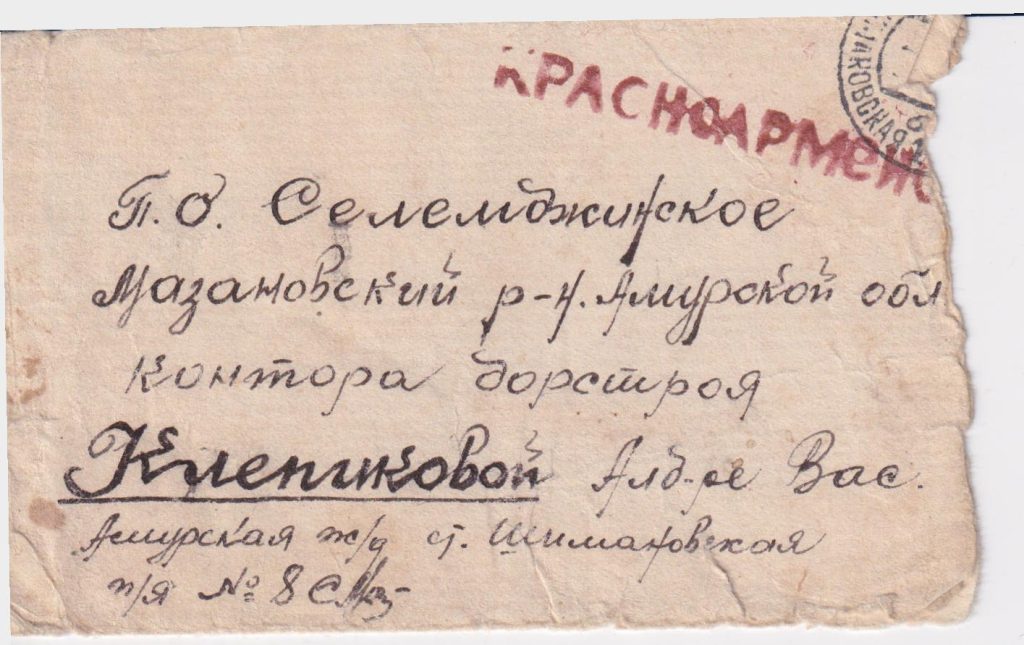 КРАСНОАРМЕЙС
МАКОВСКАЯ
П.О. Селемджинское
Мазановский р-н. Амурской обл
контора дорстроя
Клепиковой Алд-ре Вас.
Амурская ж/д ст. Шимановская
п/я № 8